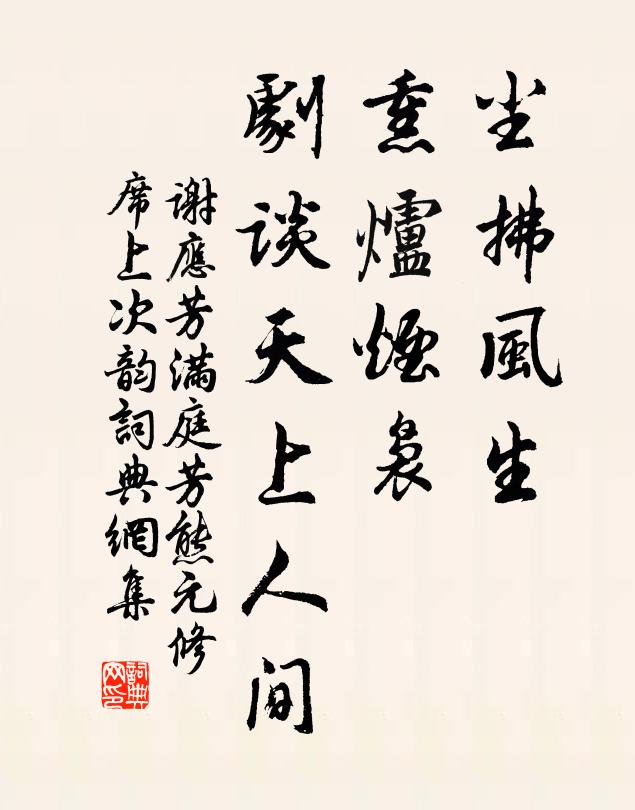 尘拂風生
熏爐煙裊
劇談天上人间
謝應芳滿庭芳熊元修
席上次韵詞典網集
詞典
网印